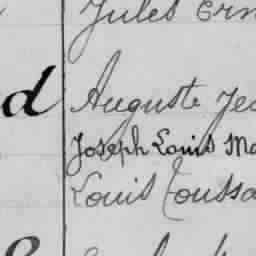 Jules Ern
d Auguste Je
Joseph Louis Ma
Louis Toussa